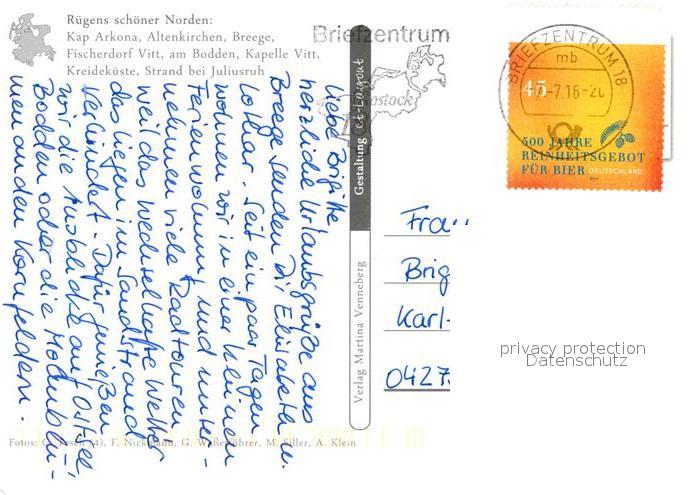 Rügens schöner Norden:
Kap Arkona, Altenkirchen, Breege,
Fischerdorf Vitt, am Bodden, Kapelle Vitt,
Kreideküste, Strand bei Juliusruh
Liebe Brigitte
herzliche Urlaubsgrüße aus
Breege senden Dir Elisabeth u.
Lothar. Seit ein paar Tagen
wohnen wir in einer kleinen
Ferienwohnung und unter-
nehmen viele Radtouren
weil das wechselhafte Wetter
das liegen im Sandstrand
verhindert. Dafür genießen
wir die Ausblicke auf Ostsee,
Bodden oder die Mohnblu-
men an den Kornfeldern.
Gestaltung et-Layout
Verlag Martina Venneberg
Fotos: G. (4), F. Nickmann, G. Weßerführer, M. Siller, A. Klein
Briefzentrum
Rostock
BRIEFZENTRUM 18
mb
-7.16-20
45
500 JAHRE
REINHEITSGEBOT
FÜR BIER DEUTSCHLAND
Frau
Brig
Karl-
0427
privacy protection
Datenschutz